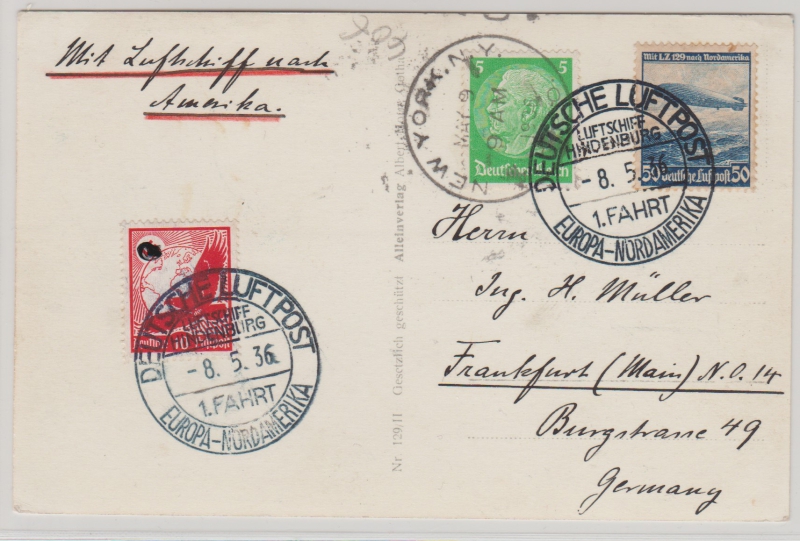 Mit Luftschiff nach
Amerika.
NEW YORK, N.Y.
MAY 9
9 AM
5 5
Deutsches Reich
Mit LZ 129 nach Nordamerika
50 Deutsche Luftpost 50
DEUTSCHE LUFTPOST
LUFTSCHIFF
HINDENBURG
- 8. 5. 36
1. FAHRT
EUROPA-NORDAMERIKA
Herrn
Ing. H. Müller
Frankfurt (Main) N.O. 14
Burgstrasse 49
Germany
10
DEUTSCHE LUFTPOST
LUFTSCHIFF
HINDENBURG
- 8. 5. 36
1. FAHRT
EUROPA-NORDAMERIKA
Nr. 129/II Gesetzlich geschützt Alleinverlag Albert Gotha